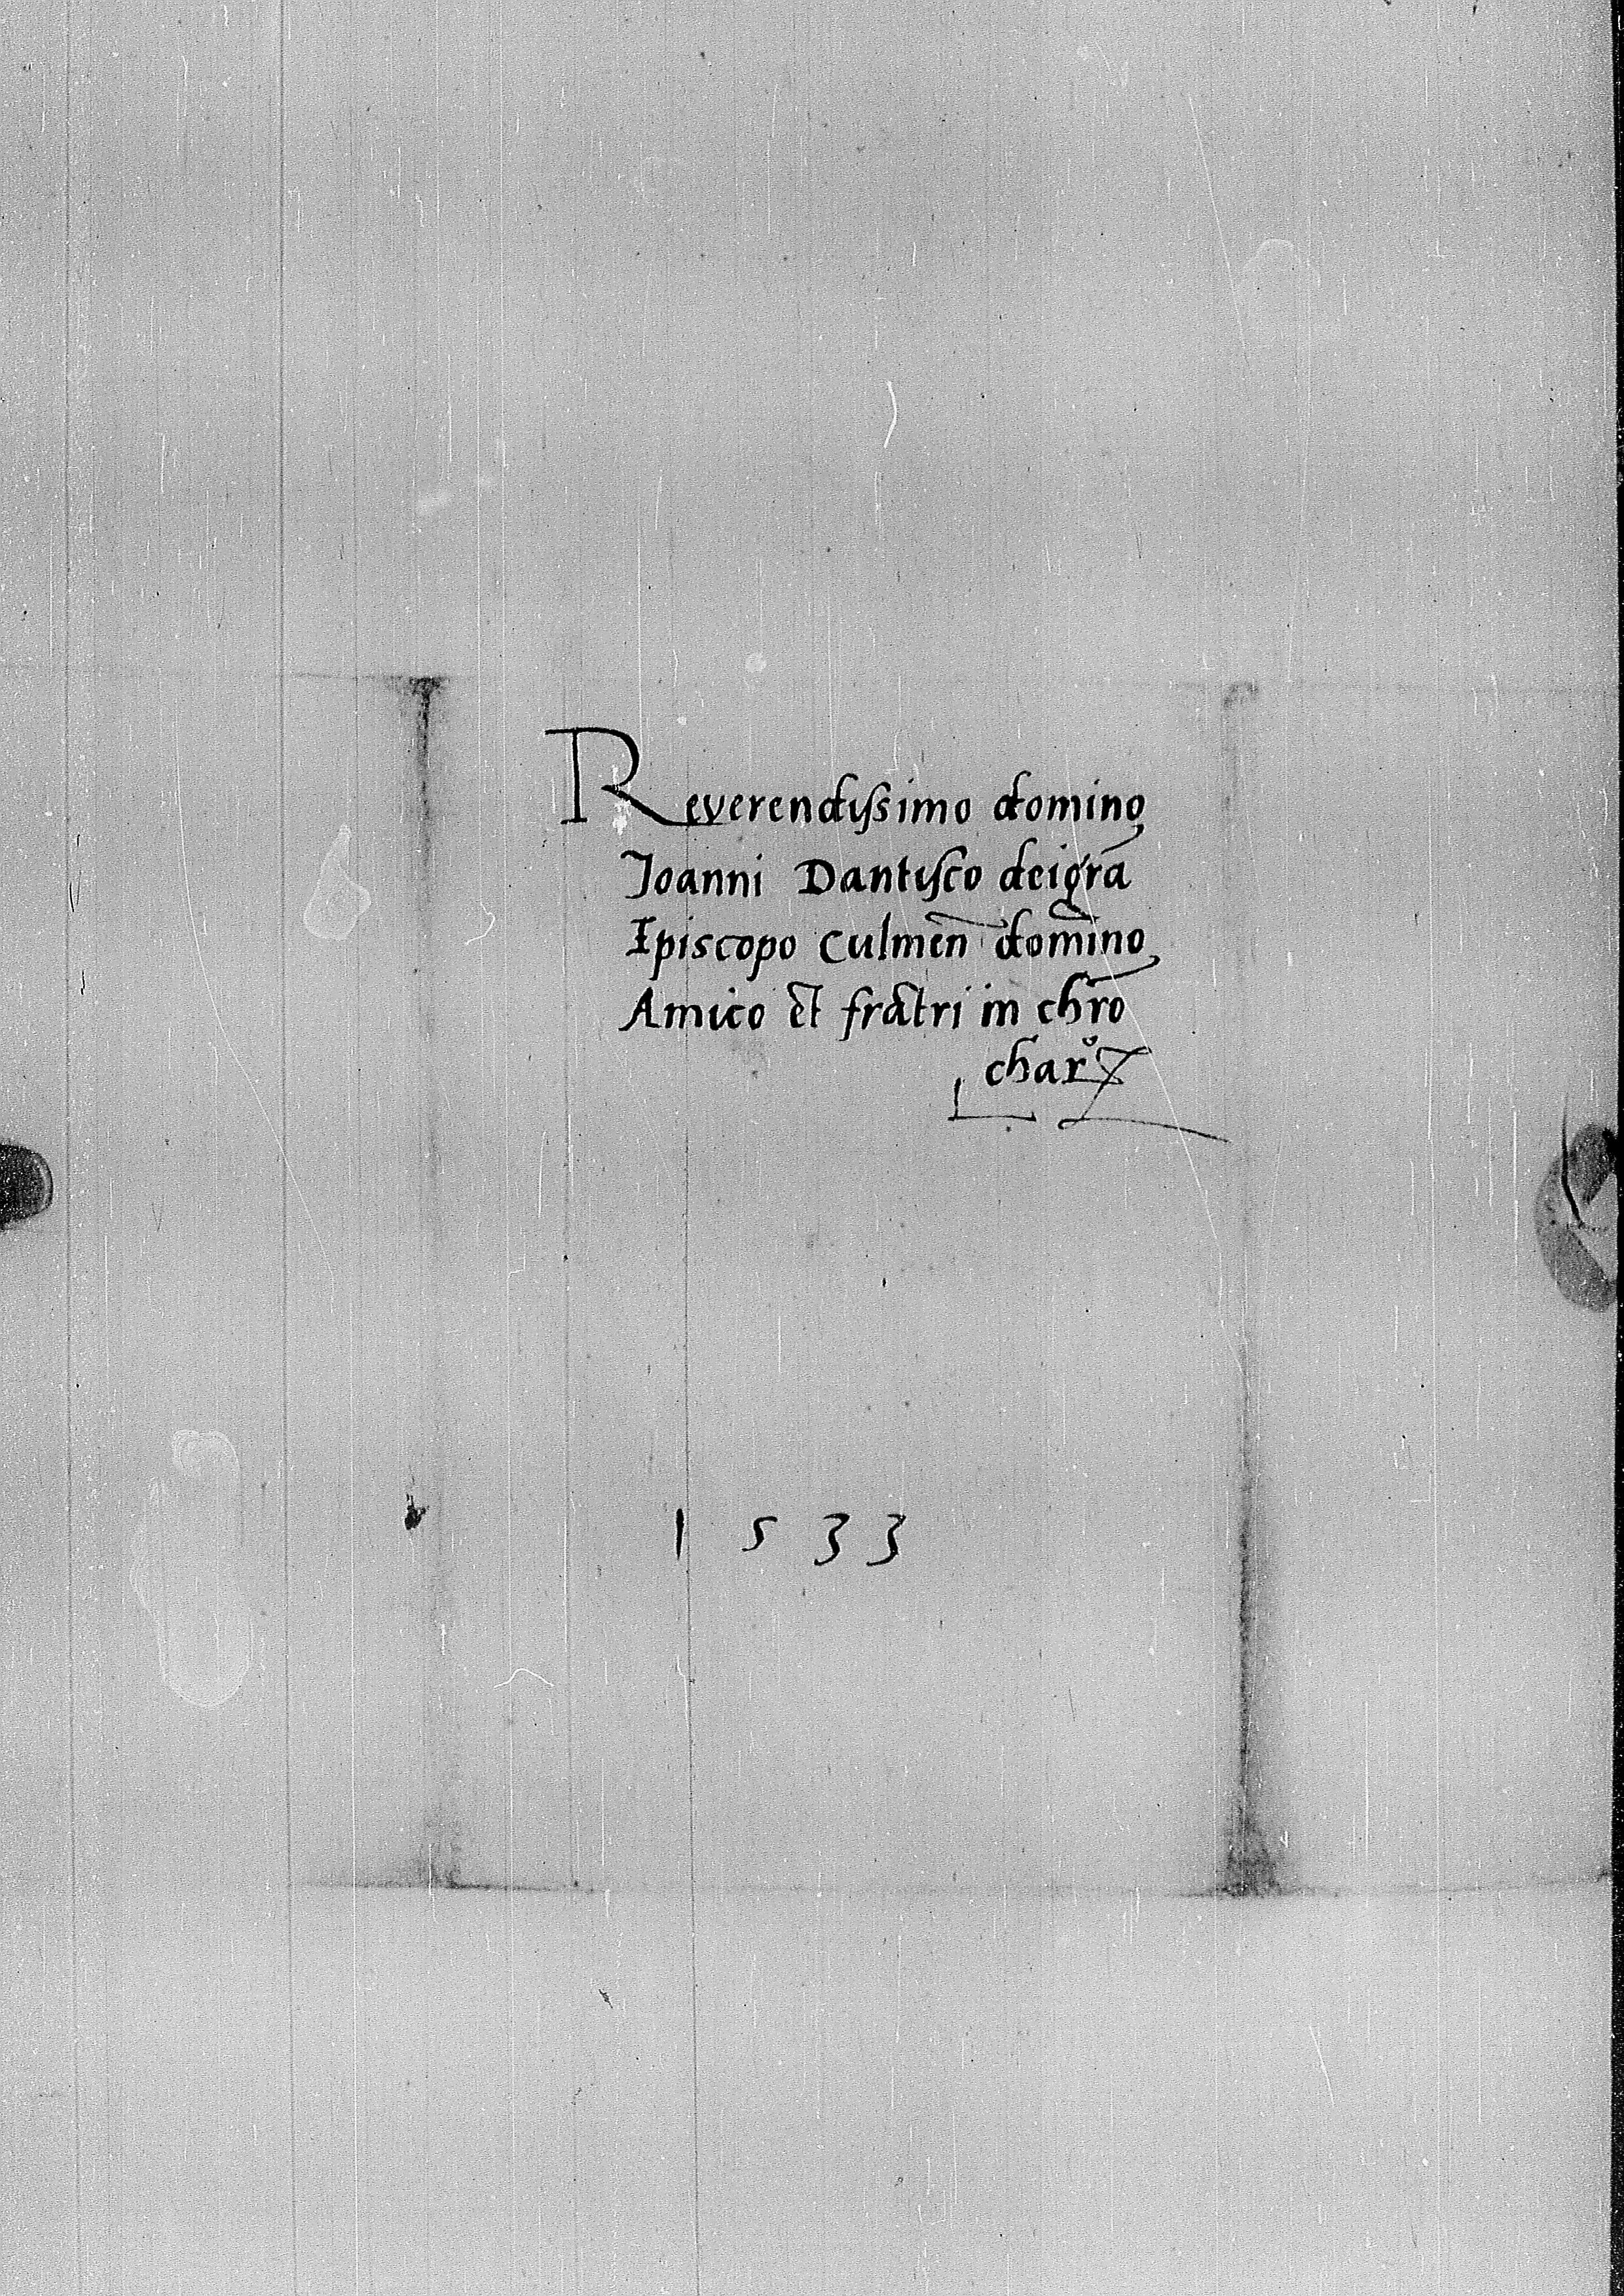 Reverendissimo domino
Ioanni Dantisco dei gr̃a
Ipiscopo Culmeñ domino
Amico et fratri in chr̃o
charº
1533